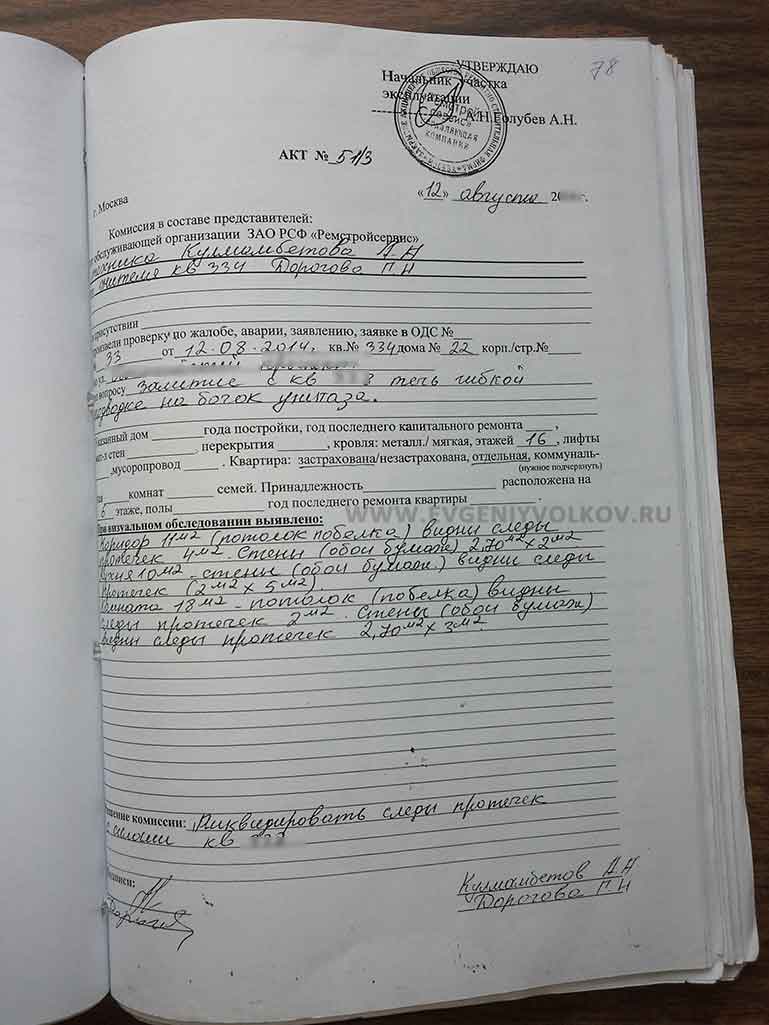 78
УТВЕРЖДАЮ
Начальник участка
эксплуатации
А.Н. Голубев А.Н.
АКТ № 51/3
г. Москва
«12» августа 20 г.
Комиссия в составе представителей:
обслуживающей организации ЗАО РСФ «Ремстройсервис»
техника Кулмамбетова А Н
жителя кв 334 Дорогова Г Н
присутствии
произвели проверку по жалобе, аварии, заявлению, заявке в ОДС №
33 от 12.08.2014. кв.№ 334 дома № 22 корп./стр.№
ул.
вопросу залитие с кв 3 3 течь гибкой
подводке на бочок унитаза.
Указанный дом года постройки, год последнего капитального ремонта ,
мат-л стен , перекрытия , кровля: металл./ мягкая, этажей 16, лифты
,мусоропровод . Квартира: застрахована/незастрахована, отдельная, коммуналь-
(нужное подчеркнуть)
ная комнат семей. Принадлежность расположена на
6 этаже, полы год последнего ремонта квартиры .
WWW.EVGENIYVOLKOV.RU
При визуальном обследовании выявлено:
Коридор 11м2 (потолок побелка) видны следы
протечек 4м2. Стены (обои бумаж) 2,70м2 x 2м2
Кухня 10м2 - стены (обои бумаж.) видны следы
протечек (2м2 x 5м2)
Комната 18м2 - потолок (побелка) видны
следы протечек 2м2. Стены (обои бумаж)
видны следы протечек 2,70м2 x 3м2.
Решение комиссии: Ликвидировать следы протечек
силами кв
Подписи:
Кулмамбетов А Н
Дорогова Г Н